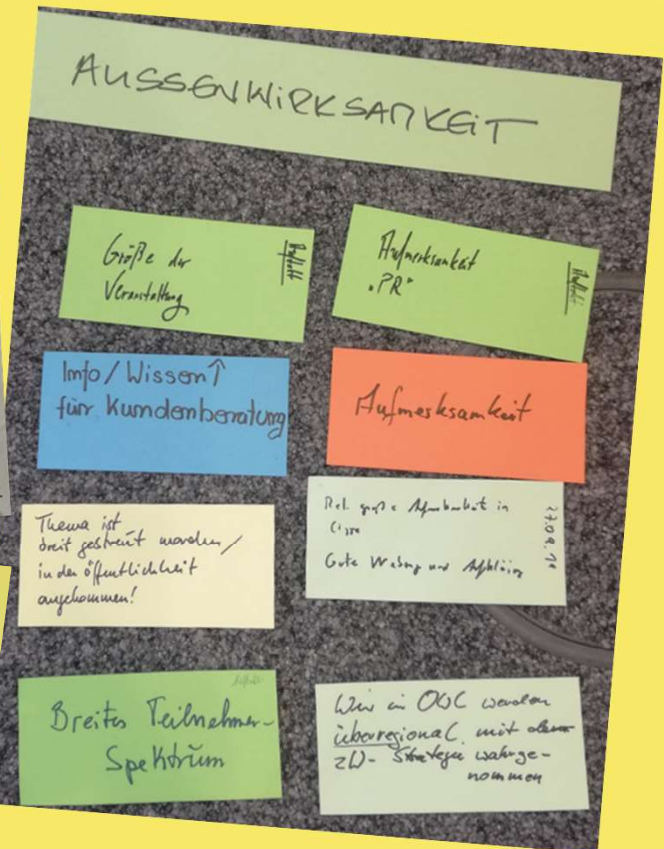 AUSSENWIRKSAMKEIT
Größe der
Veranstaltung
Auftakt
Aufmerksamkeit
"PR"
Auftakt
Info/Wissen↑
für Kundenberatung
Aufmerksamkeit
Thema ist
breit gestreut worden/
in der Öffentlichkeit
angekommen!
Rel. große in
Gute und
Breites Teilnehmer-
Spektrum
Wir in OWL werden
überregional mit
Strategie wahrge-
nommen